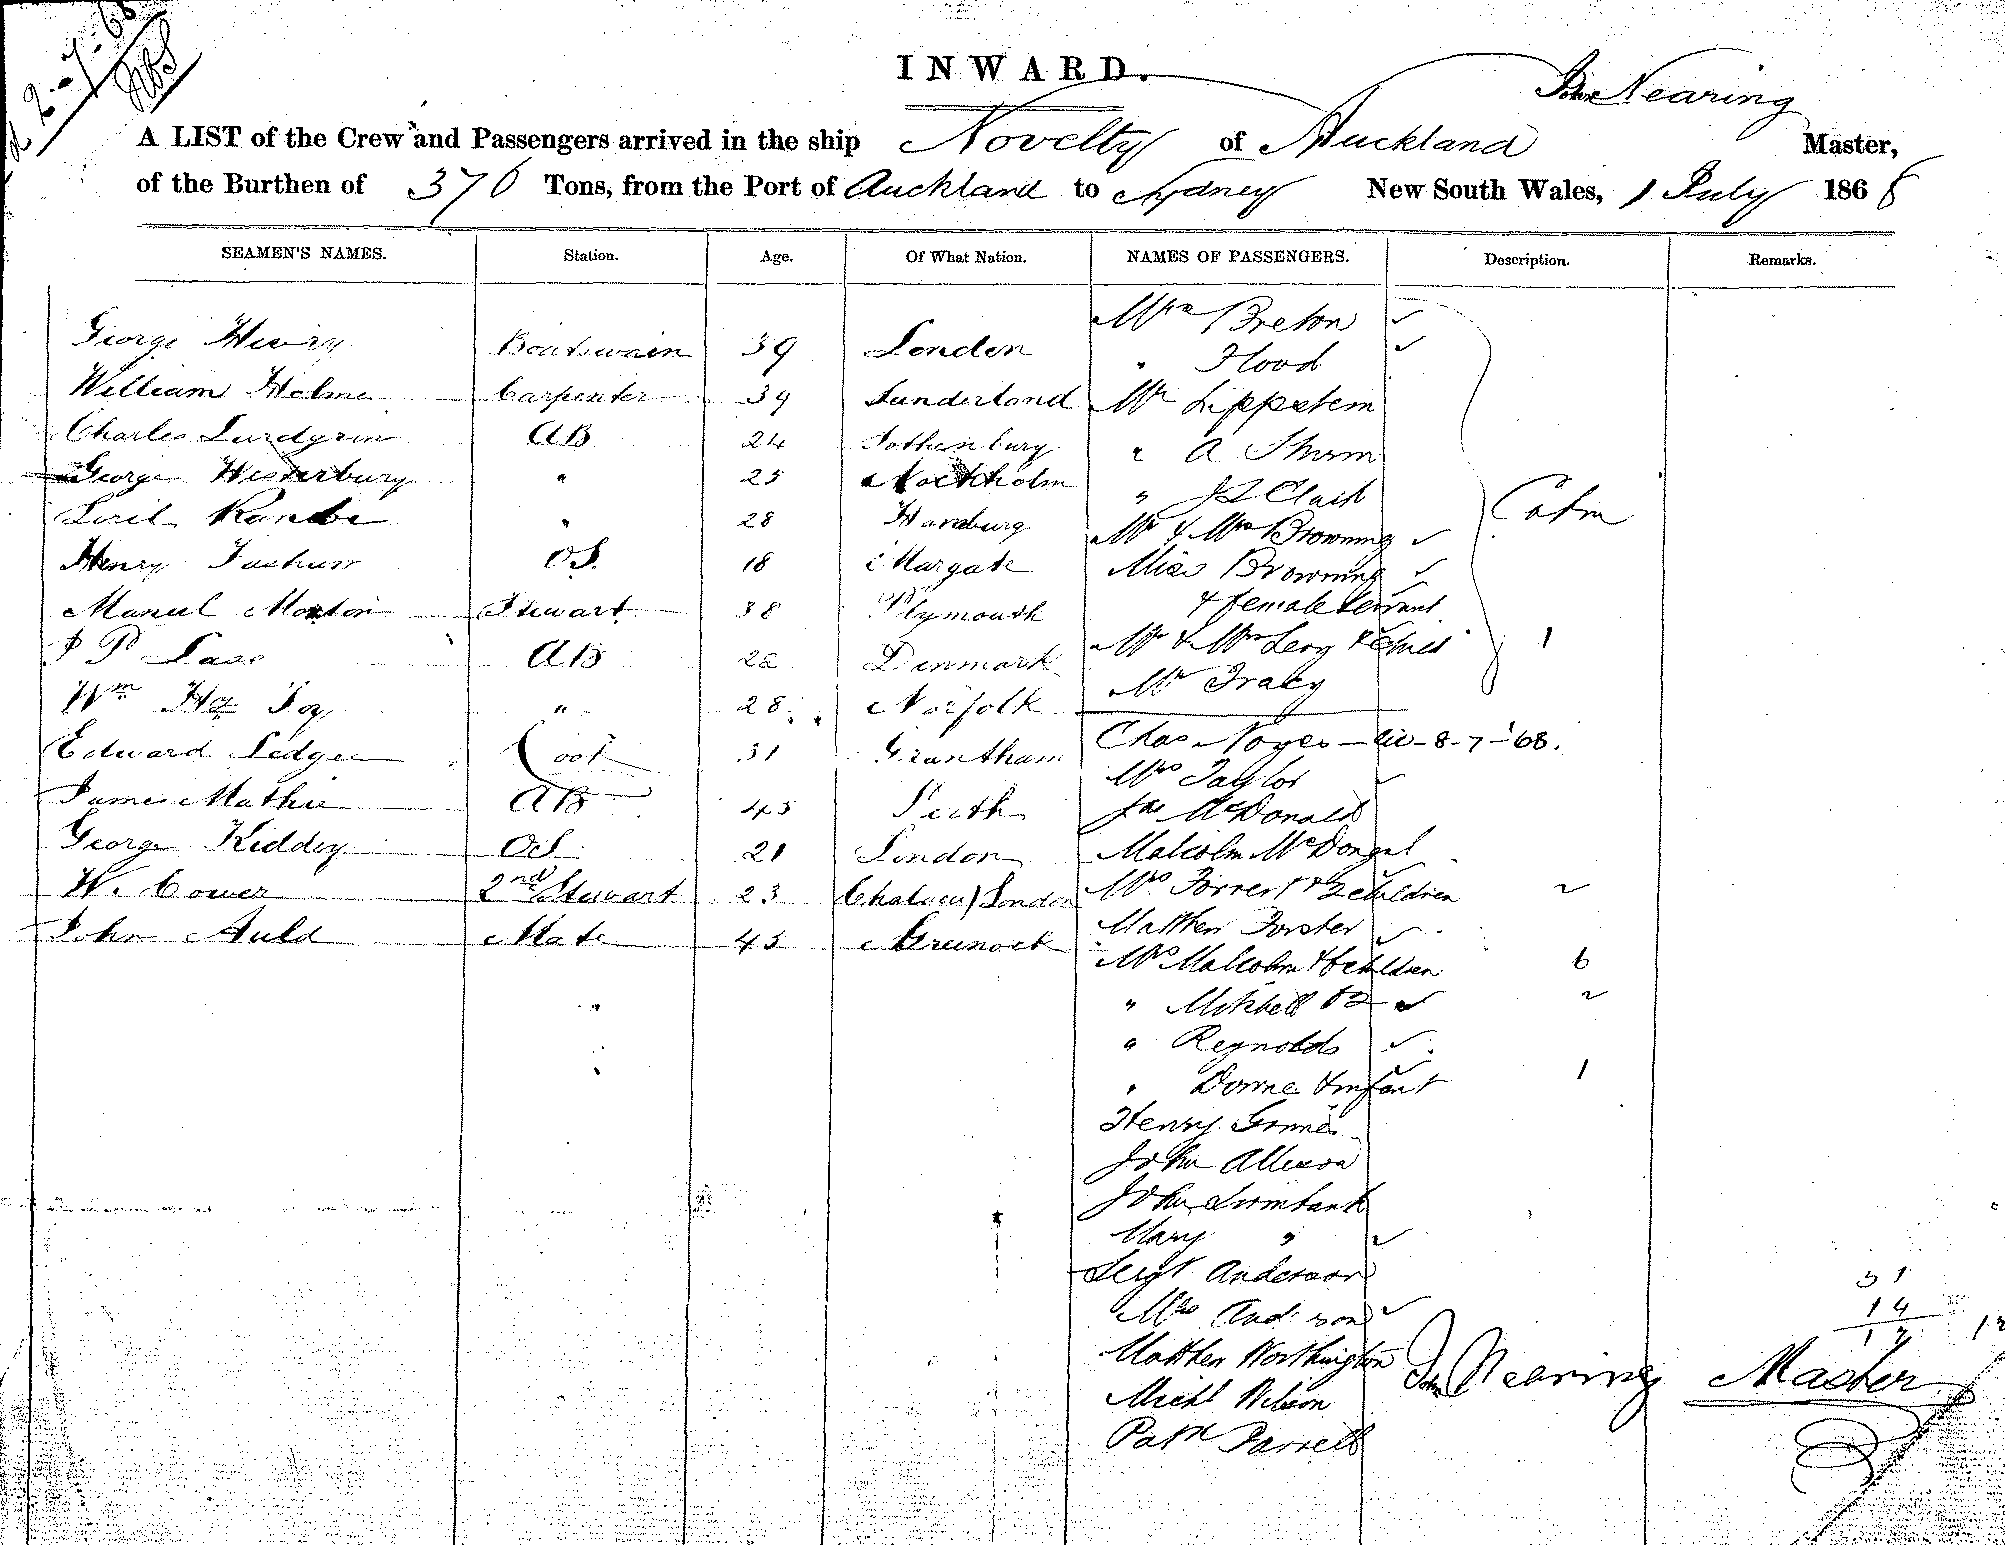 2-7-68
INWARD.
John Nearing
A LIST of the Crew and Passengers arrived in the ship Novelty of Auckland Master,
of the Burthen of 376 Tons, from the Port of Auckland to Sydney New South Wales, 1 July 1868
SEAMEN'S NAMES. Station. Age. Of What Nation. NAMES OF PASSENGERS. Description. Remarks.
George Henry Boatswain 39 London
William Holme Carpenter 39 Sunderland
Charles AB 24 Gothenburg
George Westerburg " 25 Stockholm
" 28 Hamburg
Henry OS. 18 Margate
Manuel Morton Stewart 38 Plymouth
AB Denmark
Wm Hy Foy " 28 Norfolk
Edward Ledger Cook 31 Grantham
James Mathie AB 45 Perth
George Kiddey OS 21 London
W. Cower 2nd Stewart 23 London
John Auld Mate 45 Greenock
Mrs Breton
" Flood
Mr
" A
"
Mr & Mrs Browning
Miss Browning
& female servant
Cabin
Mr & Mrs Levy & child 1
Mr Tracy
Chas Noyes - 8-7-'68.
Mrs Taylor
Jas McDonald
Malcolm McDougal
Mrs Forrest & 2 children 2
Matthew Forster
Mrs Malcolm & 6 children 6
" Mitchell & 2 2
" Reynolds
" Dorne & infant 1
Henry
John Allison
John
Mary "
Sergt Anderson
Mrs Anderson
Matthew Worthington
Michl Wilson
Patk Farrell
31
14
17
John Nearing Master